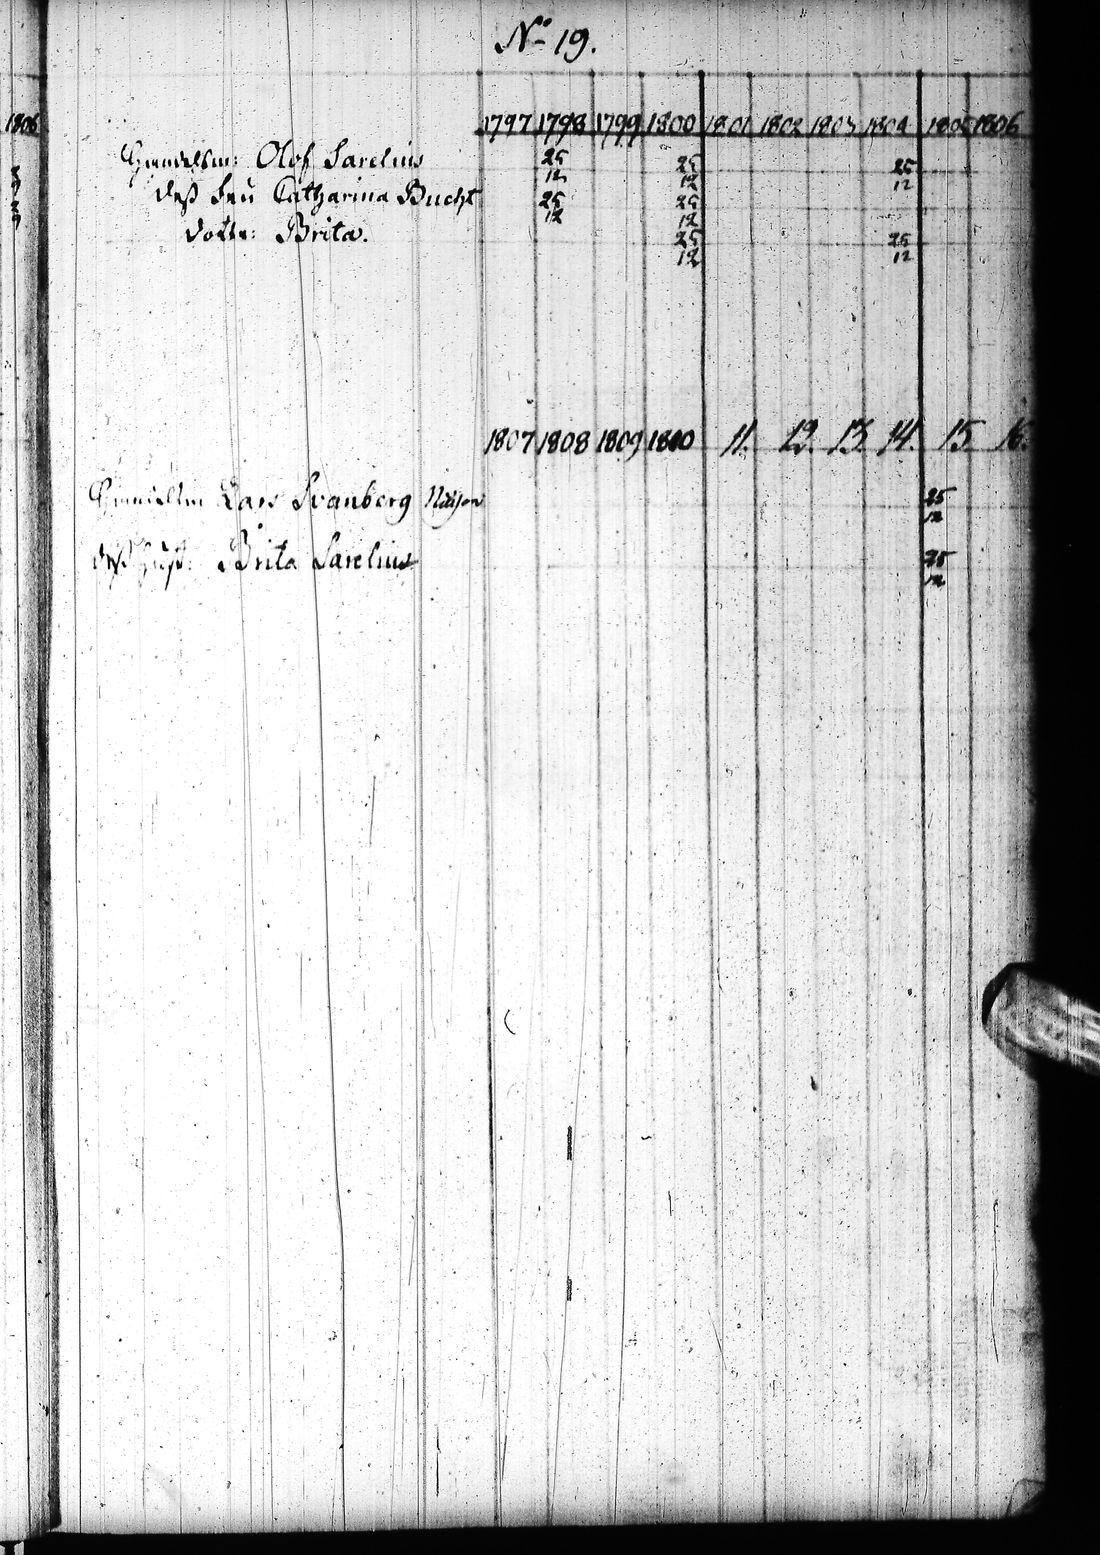 No 19.
1806
1797 1798 1799 1800 1801 1802 1803 1804 1805 1806
Handelsm: Olof Sarelius 25 25 25
12 12 12
deß Fru Catharina Bucht 25 25
12 12
Dottr: Brita. 25 25
12 12
1807 1808 1809 1810 11. 12. 13. 14. 15. 16.
Handelsm Lars Svanberg 25
12
deß Hust: Brita Sarelius 25
12